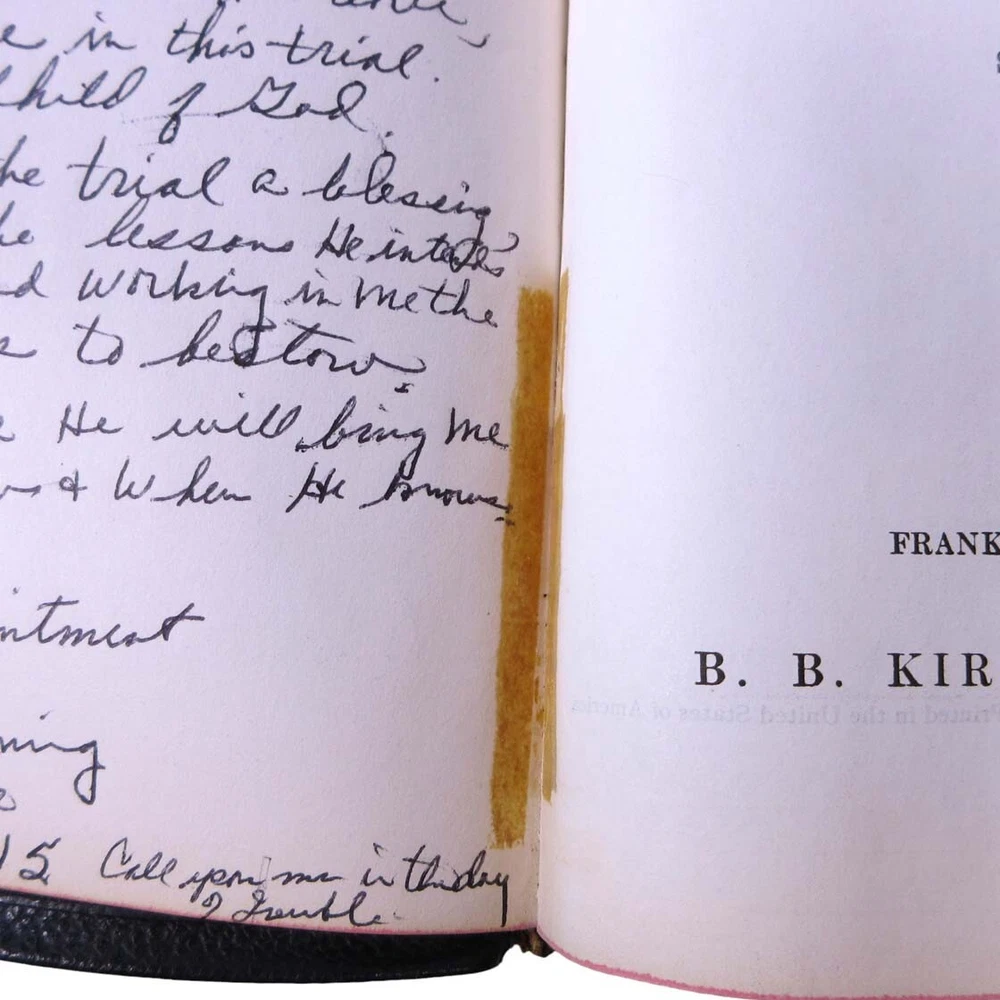 e in this trial.
child of God.
he trial a blessing,
he lessons He intends
d working in me the
s to bestow.
He will bring me
& When He knows.
intment
ning
15 Call upon me in the day
of Trouble.
FRANK
B. B. KIR
Printed in the United States of America